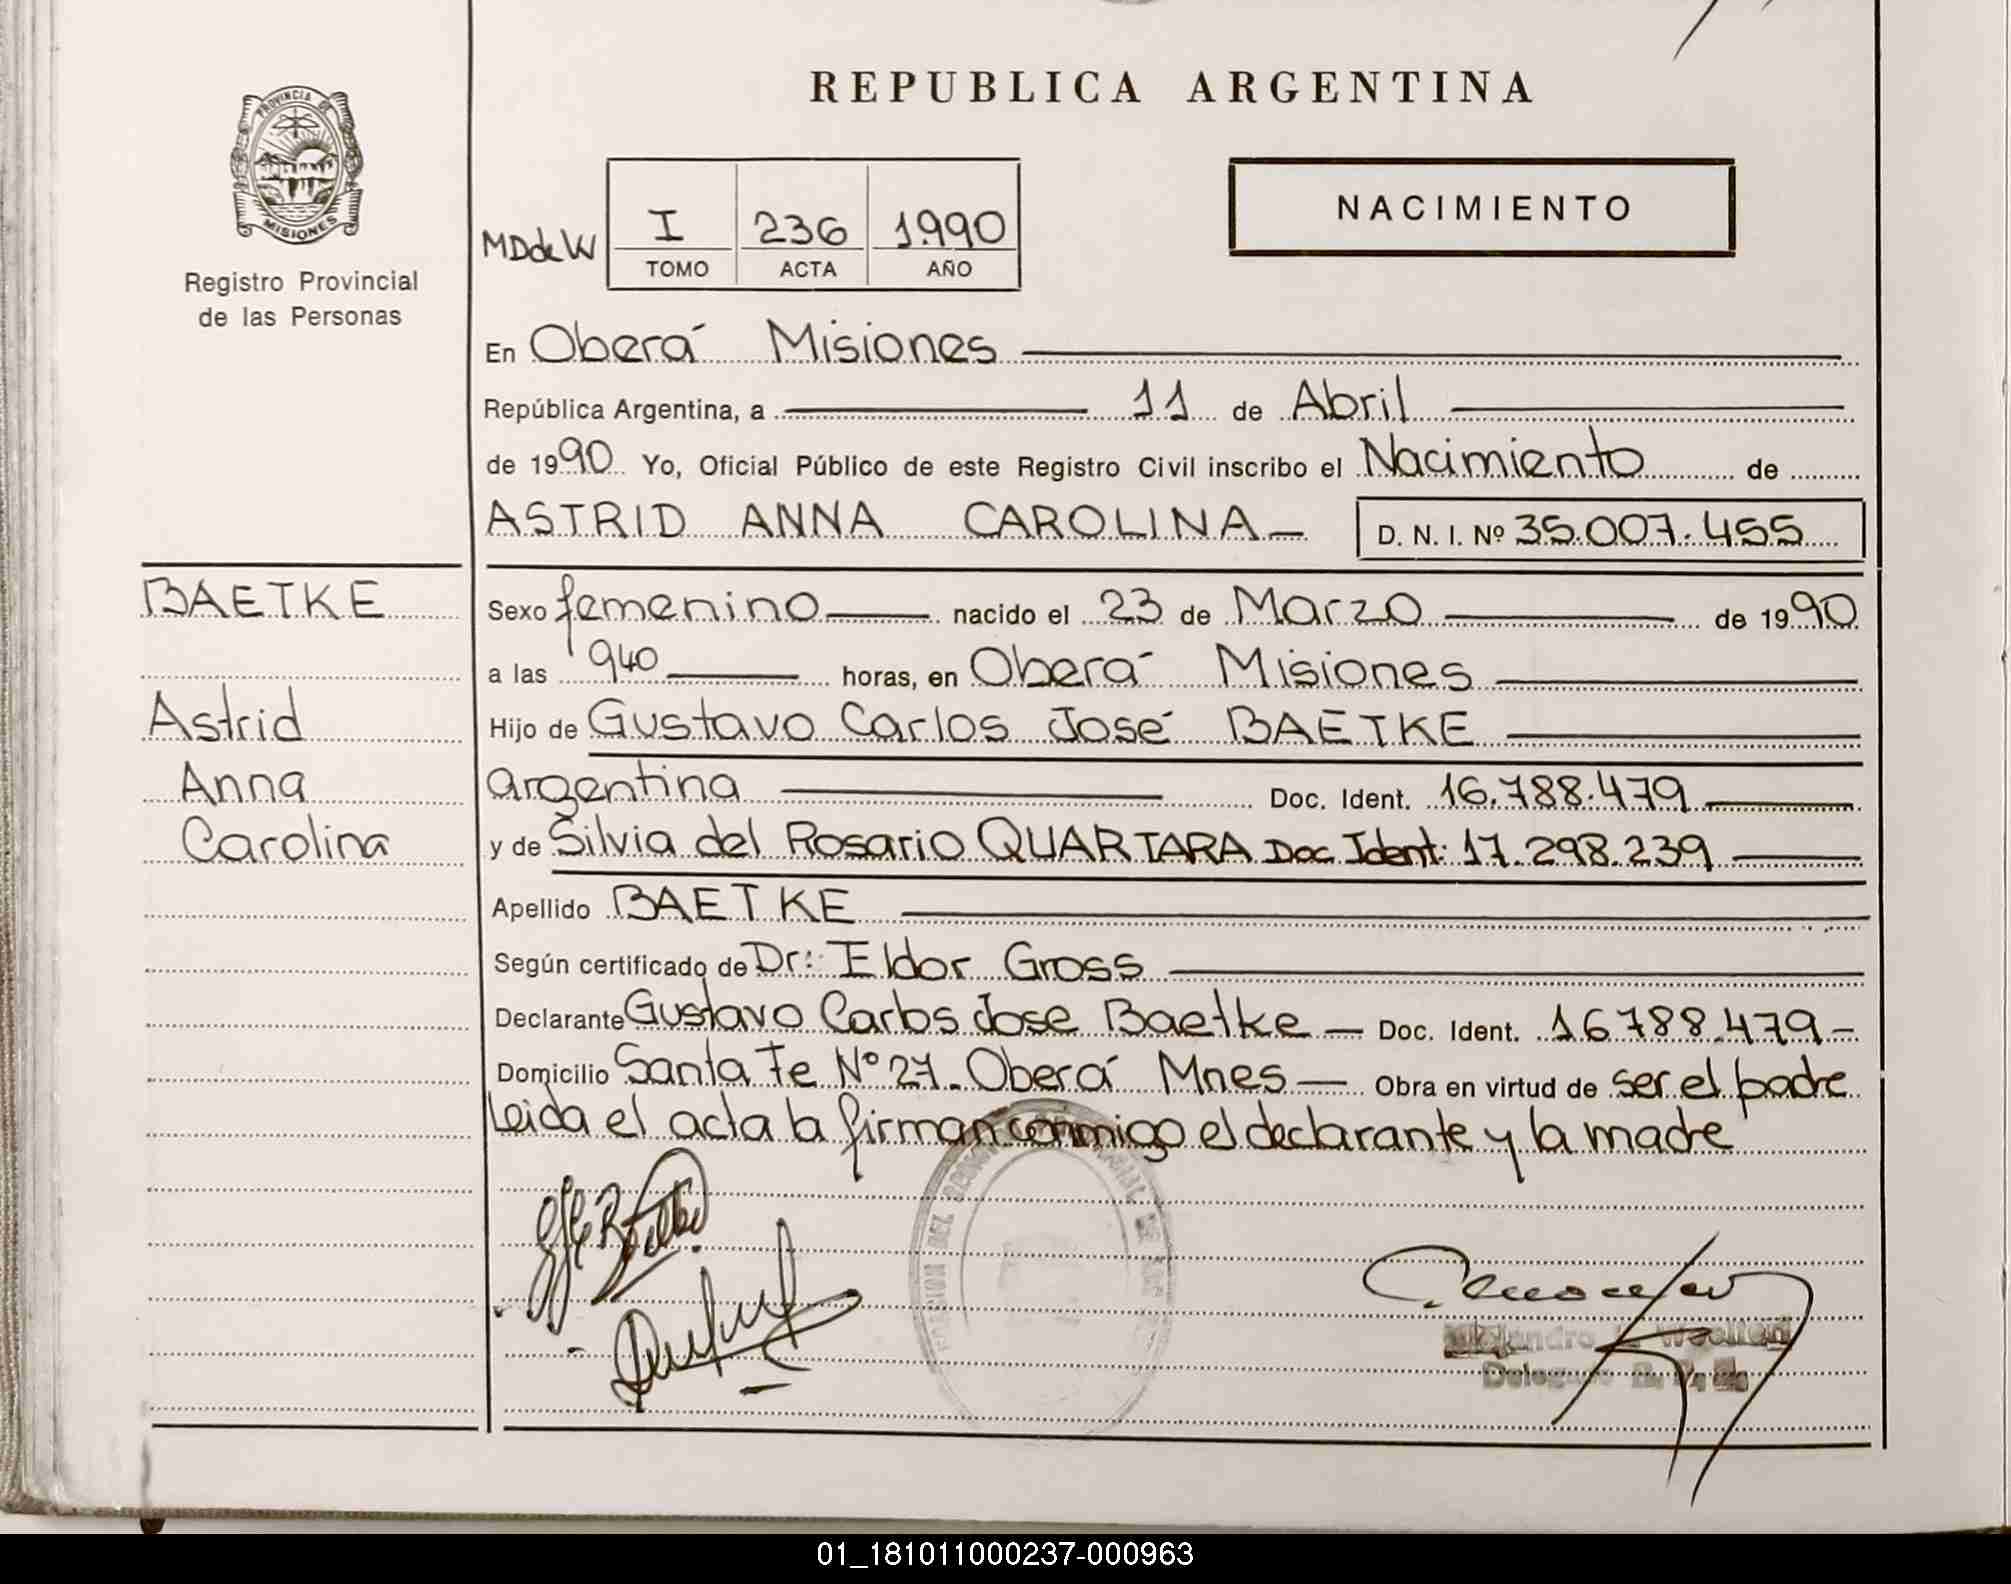 REPUBLICA ARGENTINA
PROVINCIA DE
MISIONES
Registro Provincial
de las Personas
MDdeW
I 236 1.990
TOMO ACTA AÑO
NACIMIENTO
En Oberá Misiones
República Argentina, a 11 de Abril
de 1990 Yo, Oficial Público de este Registro Civil inscribo el Nacimiento de
ASTRID ANNA CAROLINA— D. N. I. Nº 35.007.455
BAETKE
Astrid
Anna
Carolina
Sexo femenino nacido el 23 de Marzo de 1990
a las 940 horas, en Oberá Misiones
Hijo de Gustavo Carlos José BAETKE
argentina Doc. Ident. 16.788.479
y de Silvia del Rosario QUARTARA Doc Ident: 17.298.239
Apellido BAETKE
Según certificado de Dr: Eldor Gross
Declarante Gustavo Carlos Jose Baetke — Doc. Ident. 16788.479-
Domicilio Santa Fe Nº 27- Oberá Mnes — Obra en virtud de ser el padre
Leida el acta la firman conmigo el declarante y la madre
01_181011000237-000963